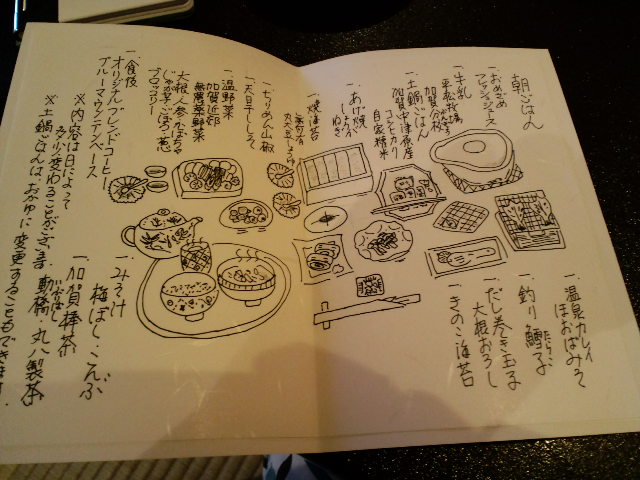 朝ごはん
一.おめざめ
フレッシュジュース
一.牛乳
平松牧場
加賀分校
一.土鍋ごはん
加賀中津原産
コシヒカリ
自家精米
一.あげ焼
しょうが
ねぎ
一.焼海苔
一.ちりめん山椒
一.天日干ししらす
一.温野菜
加賀近郷
無農薬野菜
大根 人参 かぼちゃ
じゃが芋 ごぼう 葱
ブロッコリー
一.食後
オリジナルブレンドコーヒー
ブルーマウンテンベース
※内容は日によって
多少変わることがございます
※土鍋ごはんは、おかゆに変更することもできます.
一.温泉カレイ
ほおばみそ
一.釣り鱈子
たらこ
一.だし巻き玉子
大根おろし
一.きのこ海苔
一.みそ汁
梅ぼし、こんぶ
一.加賀棒茶
動橋 丸八製茶
いぶりばし